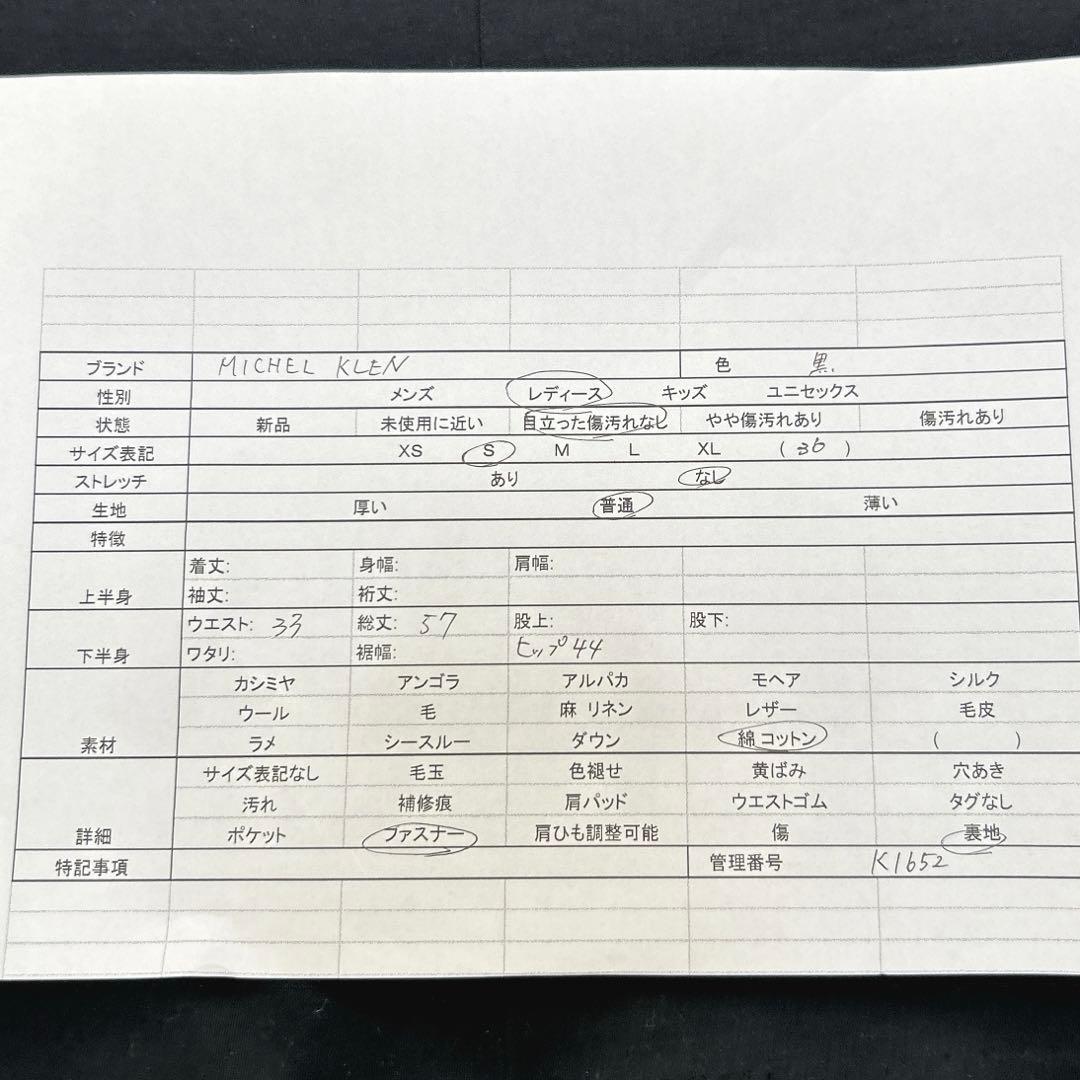 ブランド MICHEL KLEN 色 黒.
性別 メンズ レディース キッズ ユニセックス
状態 新品 未使用に近い 目立った傷汚れなし やや傷汚れあり 傷汚れあり
サイズ表記 XS S M L XL ( 36 )
ストレッチ あり なし
生地 厚い 普通 薄い
特徴
上半身 着丈: 身幅: 肩幅:
袖丈: 裄丈:
下半身 ウエスト: 33 総丈: 57 股上: 股下:
ワタリ: 裾幅: ヒップ44
素材 カシミヤ アンゴラ アルパカ モヘア シルク
ウール 毛 麻 リネン レザー 毛皮
ラメ シースルー ダウン 綿 コットン ( )
詳細 サイズ表記なし 毛玉 色褪せ 黄ばみ 穴あき
汚れ 補修痕 肩パッド ウエストゴム タグなし
ポケット ファスナー 肩ひも調整可能 傷 裏地
特記事項 管理番号 K1652